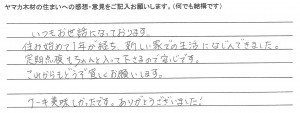 ヤマカ木材の住まいへの感想・意見をご記入お願いします。(何でも結構です)
いつもお世話になっております。
住み始めて1年が経ち、新しい家での生活になじんできました。
定期点検もちゃんと入って下さるので安心です。
これからもどうぞ宜しくお願いします。
ケーキ美味しかったです。ありがとうございました!